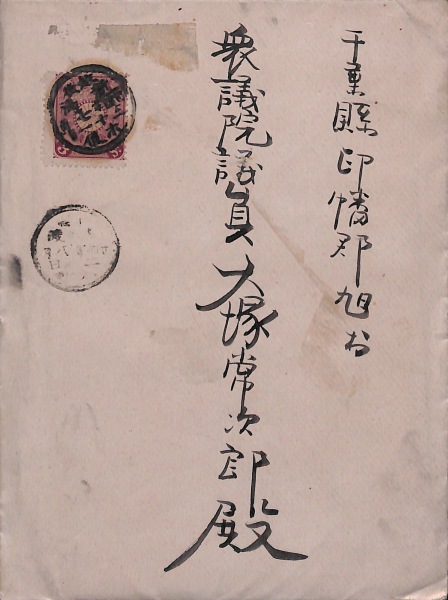 千葉縣印幡郡旭村
衆議院議員大塚常次郎殿